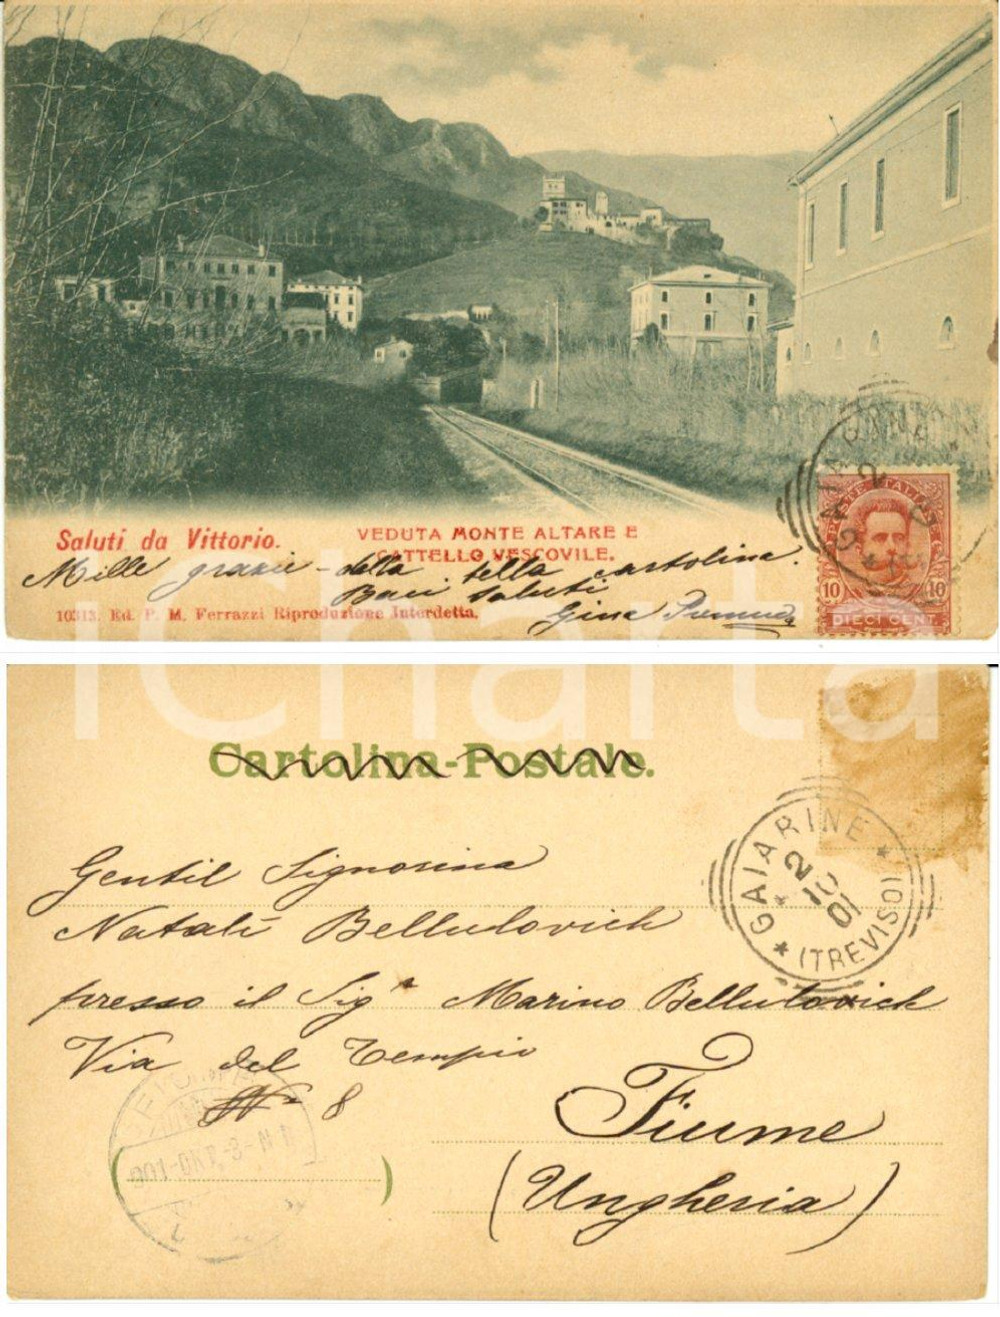 Saluti da Vittorio.
VEDUTA MONTE ALTARE E
CATTELLO VESCOVILE.
Mille grazie - della bella cartolina.
Baci saluti
Gina
10313. Ed. P. M. Ferrazzi Riproduzione Interdetta.
GAIARINE
2
POSTE ITALIANE
10 10
DIECI CENT.
iCharta
Cartolina-Postale.
GAIARINE
2
10
01
(TREVISO)
Gentil Signorina
Natali Belludovich
presso il Sig.r Marino Belludovich
Via del Tempio
No 8
Fiume
(Ungheria)